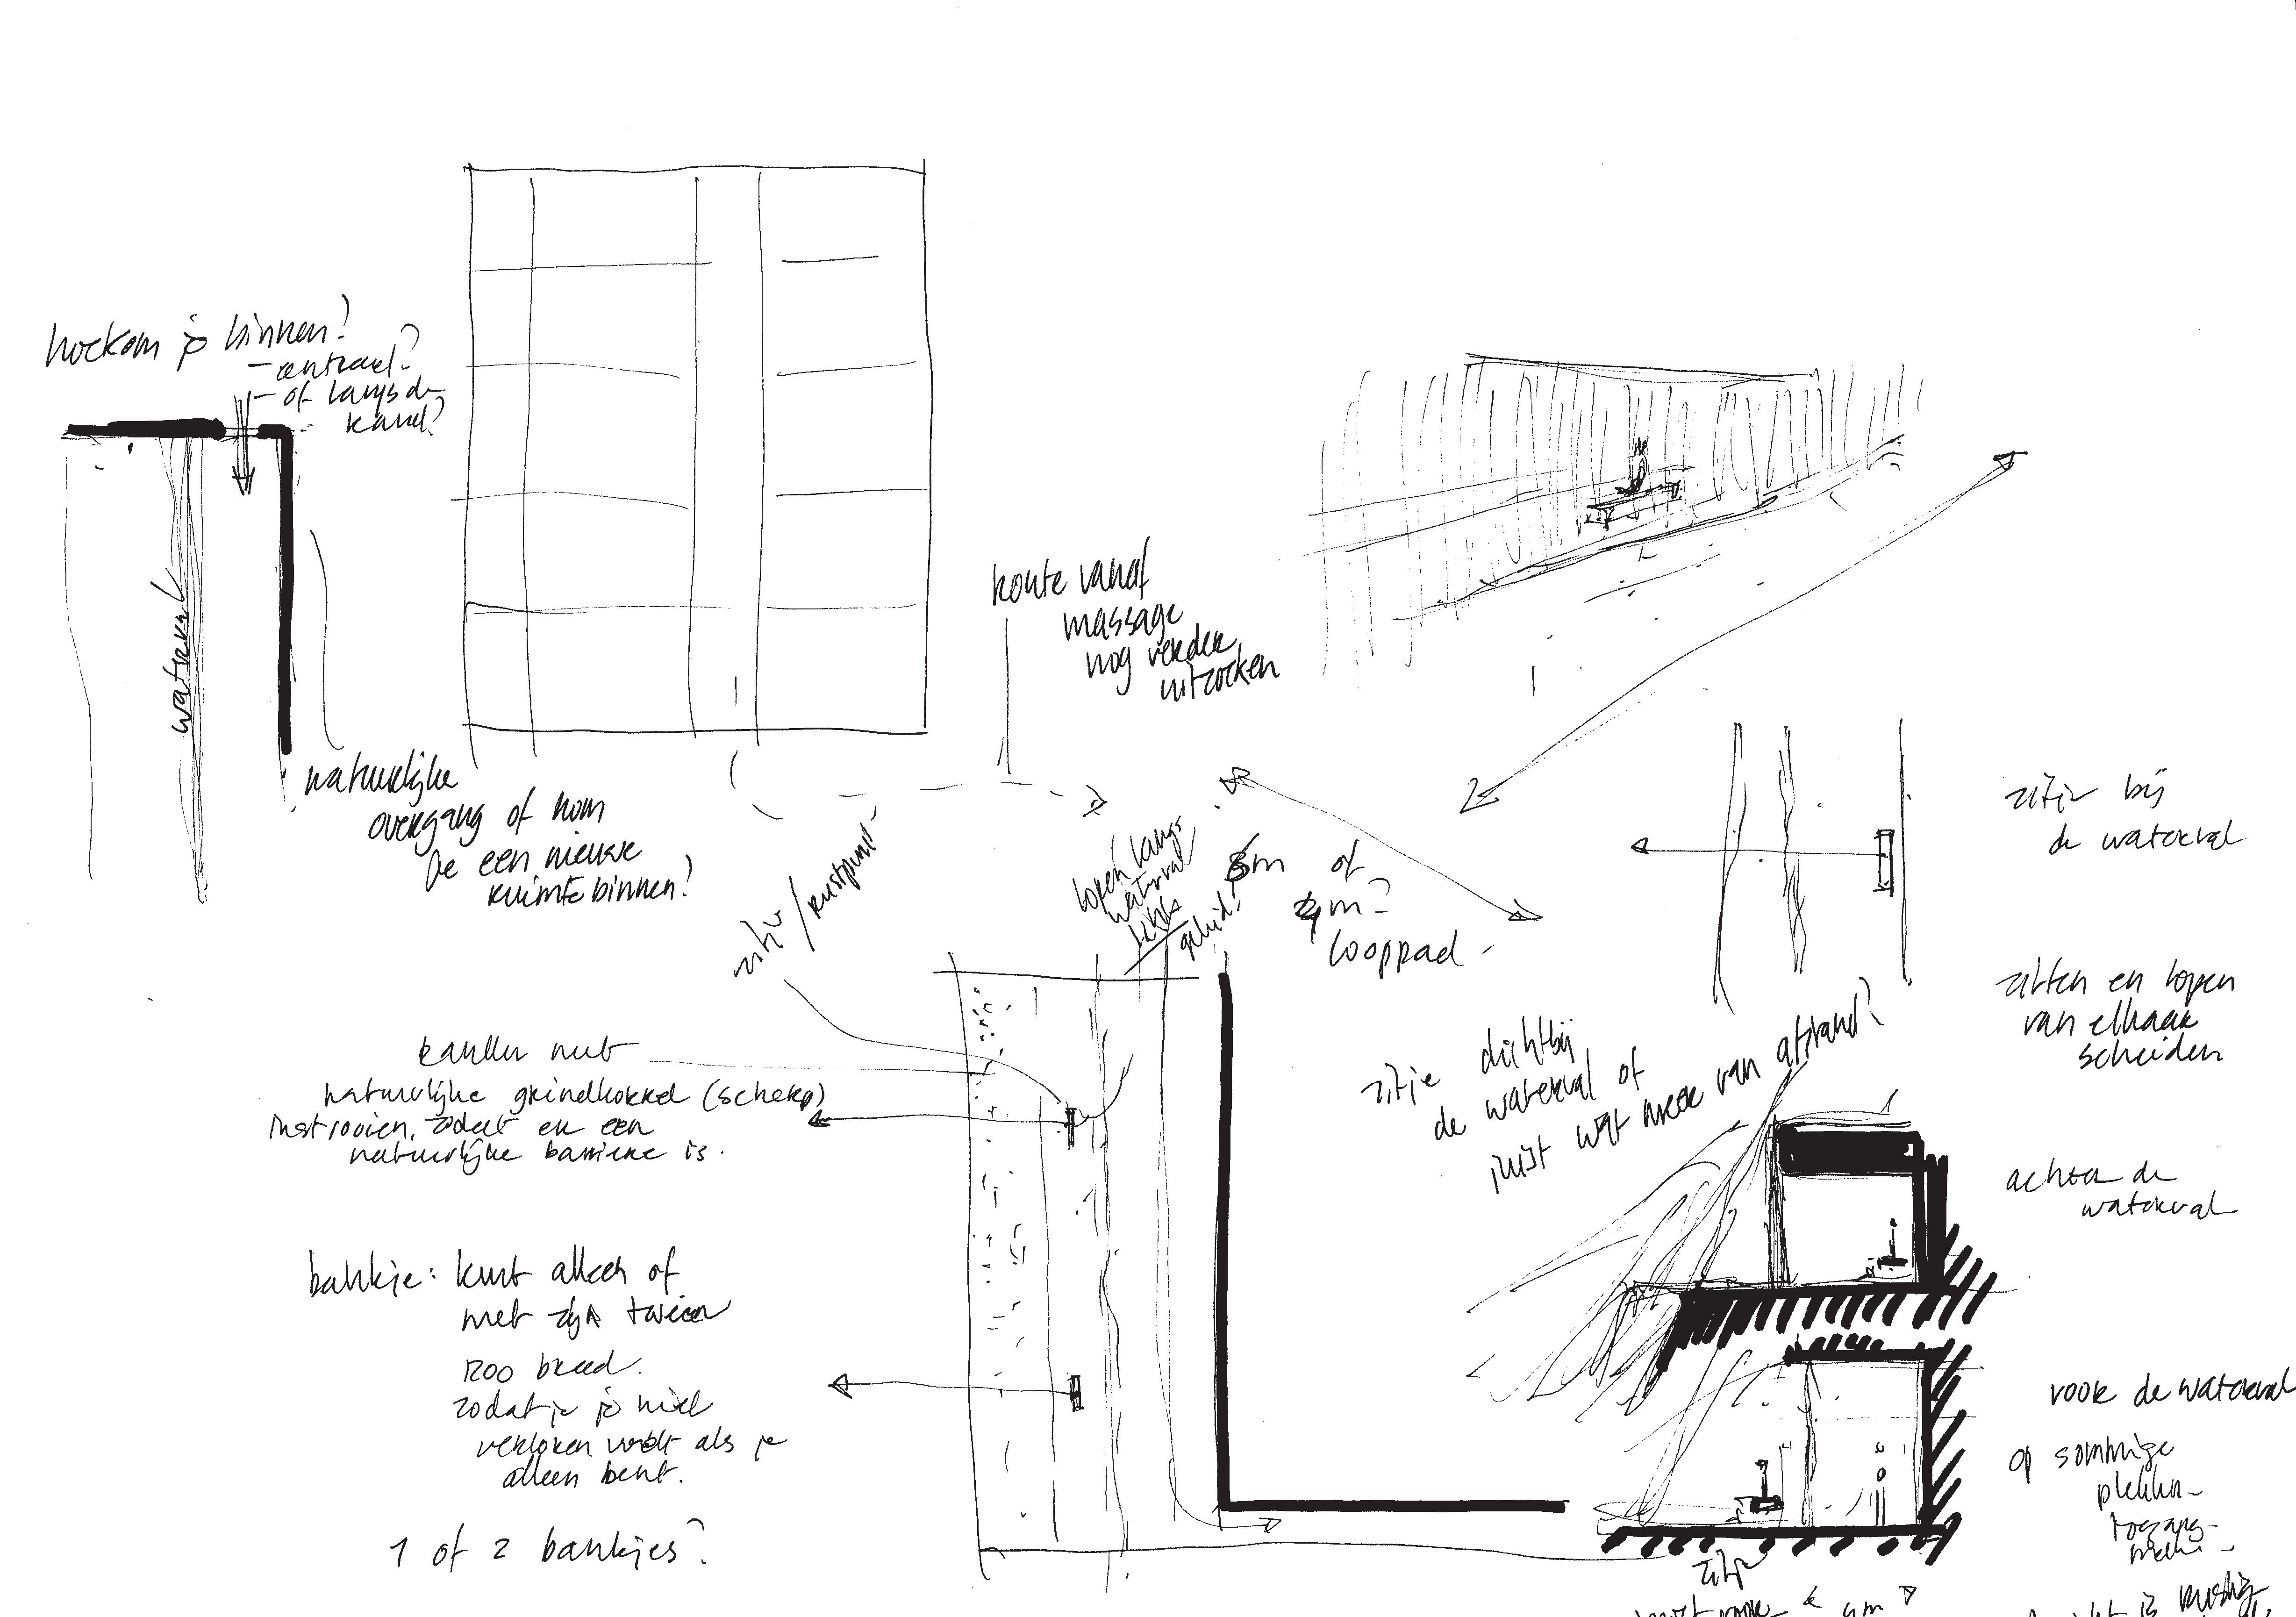 hoe kom je binnen?
- centraal?
- of langs de
kant?
waterval
natuurlijke
overgang of kom
je een nieuwe
ruimte binnen?
route vanaf
massage
nog verder
uitzoeken
zitje / rustpunt
lopen langs
waterval
geluid?
3m of
4m?
looppad
natuurlijke grindkorrel (scherp)
instrooien, zodat er een
natuurlijke barriere is.
bankje: kunt alleen of
met zijn tweeen
1200 breed.
zodat je je niet
verloren voelt als je
alleen bent.
1 of 2 bankjes?
zitje dichtbij
de waterval of
juist wat meer van afstand?
zitje bij
de waterval
zitten en lopen
van elkaar
scheiden
achter de
waterval
voor de waterval
op sommige
plekken
zitje